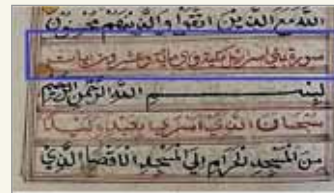 الله مع الذين اتقوا والذين هم محسنون
سورة بني اسرائيل مكية وهي مائة وعشر آيات
بسم الله الرحمن الرحيم
سبحان الذي اسرى بعبده ليلا
من المسجد الحرام الى المسجد الاقصا الذي